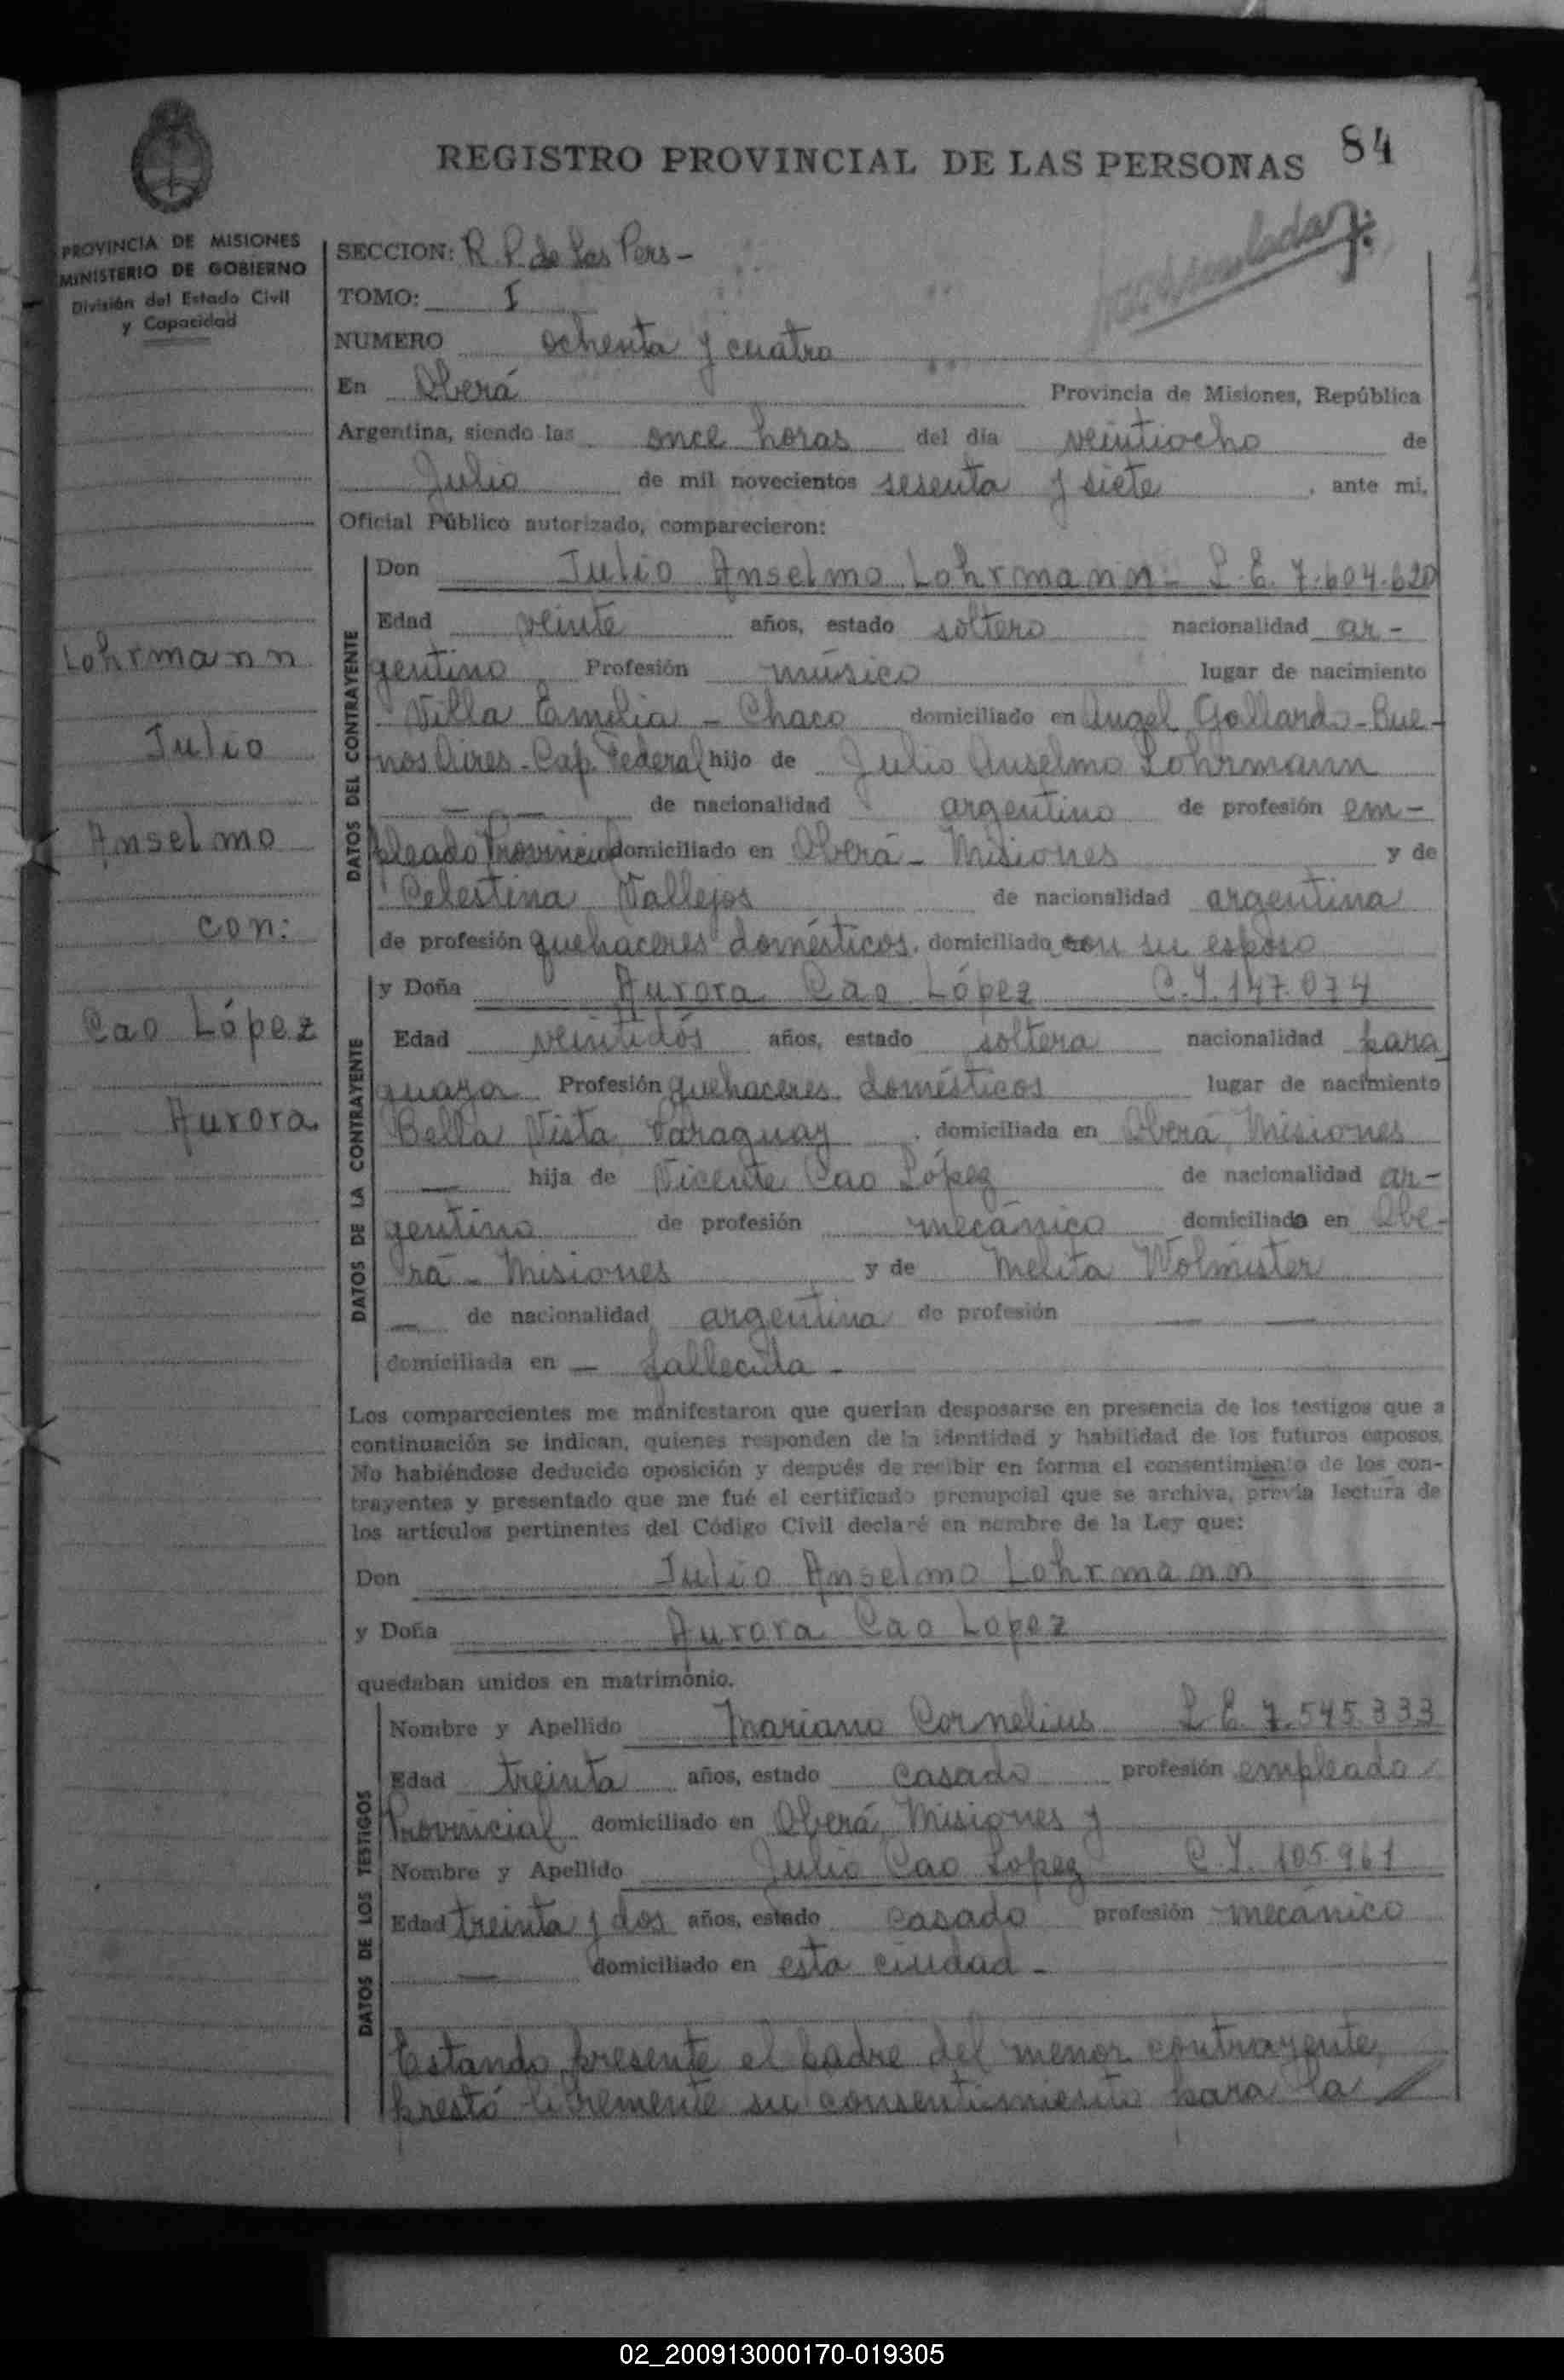 84
REGISTRO PROVINCIAL DE LAS PERSONAS
PROVINCIA DE MISIONES
MINISTERIO DE GOBIERNO
División del Estado Civil
y Capacidad
Lohrmann
Julio
Anselmo
con:
Cao López
Aurora
SECCION: R. P. de las Pers-
TOMO: I
NUMERO ochenta y cuatro
En Oberá Provincia de Misiones, República
Argentina, siendo las once horas del día veintiocho de
Julio de mil novecientos sesenta y siete, ante mi,
Oficial Público autorizado, comparecieron:
DATOS DEL CONTRAYENTE
Don Julio Anselmo Lohrmann - L.E. 7.604.620
Edad veinte años, estado soltero nacionalidad ar-
gentino Profesión músico lugar de nacimiento
Villa Emilia - Chaco domiciliado en Angel Gallardo - Bue-
nos Aires - Cap. Federal hijo de Julio Anselmo Lohrmann
— — de nacionalidad argentino de profesión em-
pleado Provincial domiciliado en Oberá - Misiones y de
Celestina Vallejos de nacionalidad argentina
de profesión quehaceres domésticos, domiciliada con su esposo
DATOS DE LA CONTRAYENTE
y Doña Aurora Cao López C.I. 147.074
Edad veintidós años, estado soltera nacionalidad para
guaya Profesión quehaceres domésticos lugar de nacimiento
Bella Vista, Paraguay, domiciliada en Oberá, Misiones
— hija de Vicente Cao López de nacionalidad ar-
gentino de profesión mecánico domiciliado en Obe-
rá - Misiones y de Melita Wolmister
— de nacionalidad argentina de profesión — —
domiciliada en — fallecida -
Los comparecientes me manifestaron que querían desposarse en presencia de los testigos que a
continuación se indican, quienes responden de la identidad y habilidad de los futuros esposos.
No habiéndose deducido oposición y después de recibir en forma el consentimiento de los con-
trayentes y presentado que me fué el certificado prenupcial que se archiva, previa lectura de
los artículos pertinentes del Código Civil declaré en nombre de la Ley que:
Don Julio Anselmo Lohrmann
y Doña Aurora Cao Lopez
quedaban unidos en matrimonio.
DATOS DE LOS TESTIGOS
Nombre y Apellido Mariano Cornelius L.E. 7.545.333
Edad treinta años, estado casado profesión empleado
Provincial domiciliado en Oberá, Misiones y
Nombre y Apellido Julio Cao Lopez C.I. 105.961
Edad treinta y dos años, estado casado profesión mecánico
— domiciliado en esta ciudad -
Estando presente el padre del menor contrayente,
prestó libremente su consentimiento para la
02_200913000170-019305